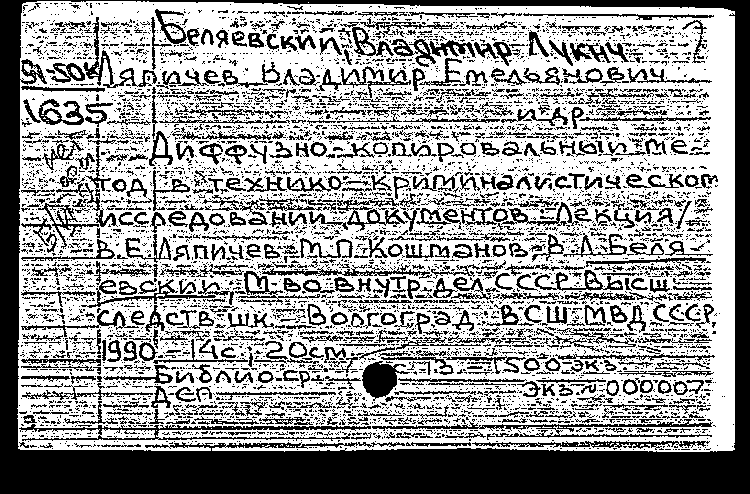 Беляевский, Владимир Лукич
Ляпичев Владимир Емельянович
1635
и др
Диффузно-копировальный ме-
тод в технико-криминалистическом
исследовании документов.-Лекция/
В.Е.Ляпичев, М.П.Кошманов, В.Л.Беля-
евский; М-во внутр.дел СССР. Высш.
следств.шк.-Волгоград: ВСШ МВД СССР,
1990.-14с.; 20см.
Библиогр.: с.13.-1500 экз.
ДСП
Экз.№000007